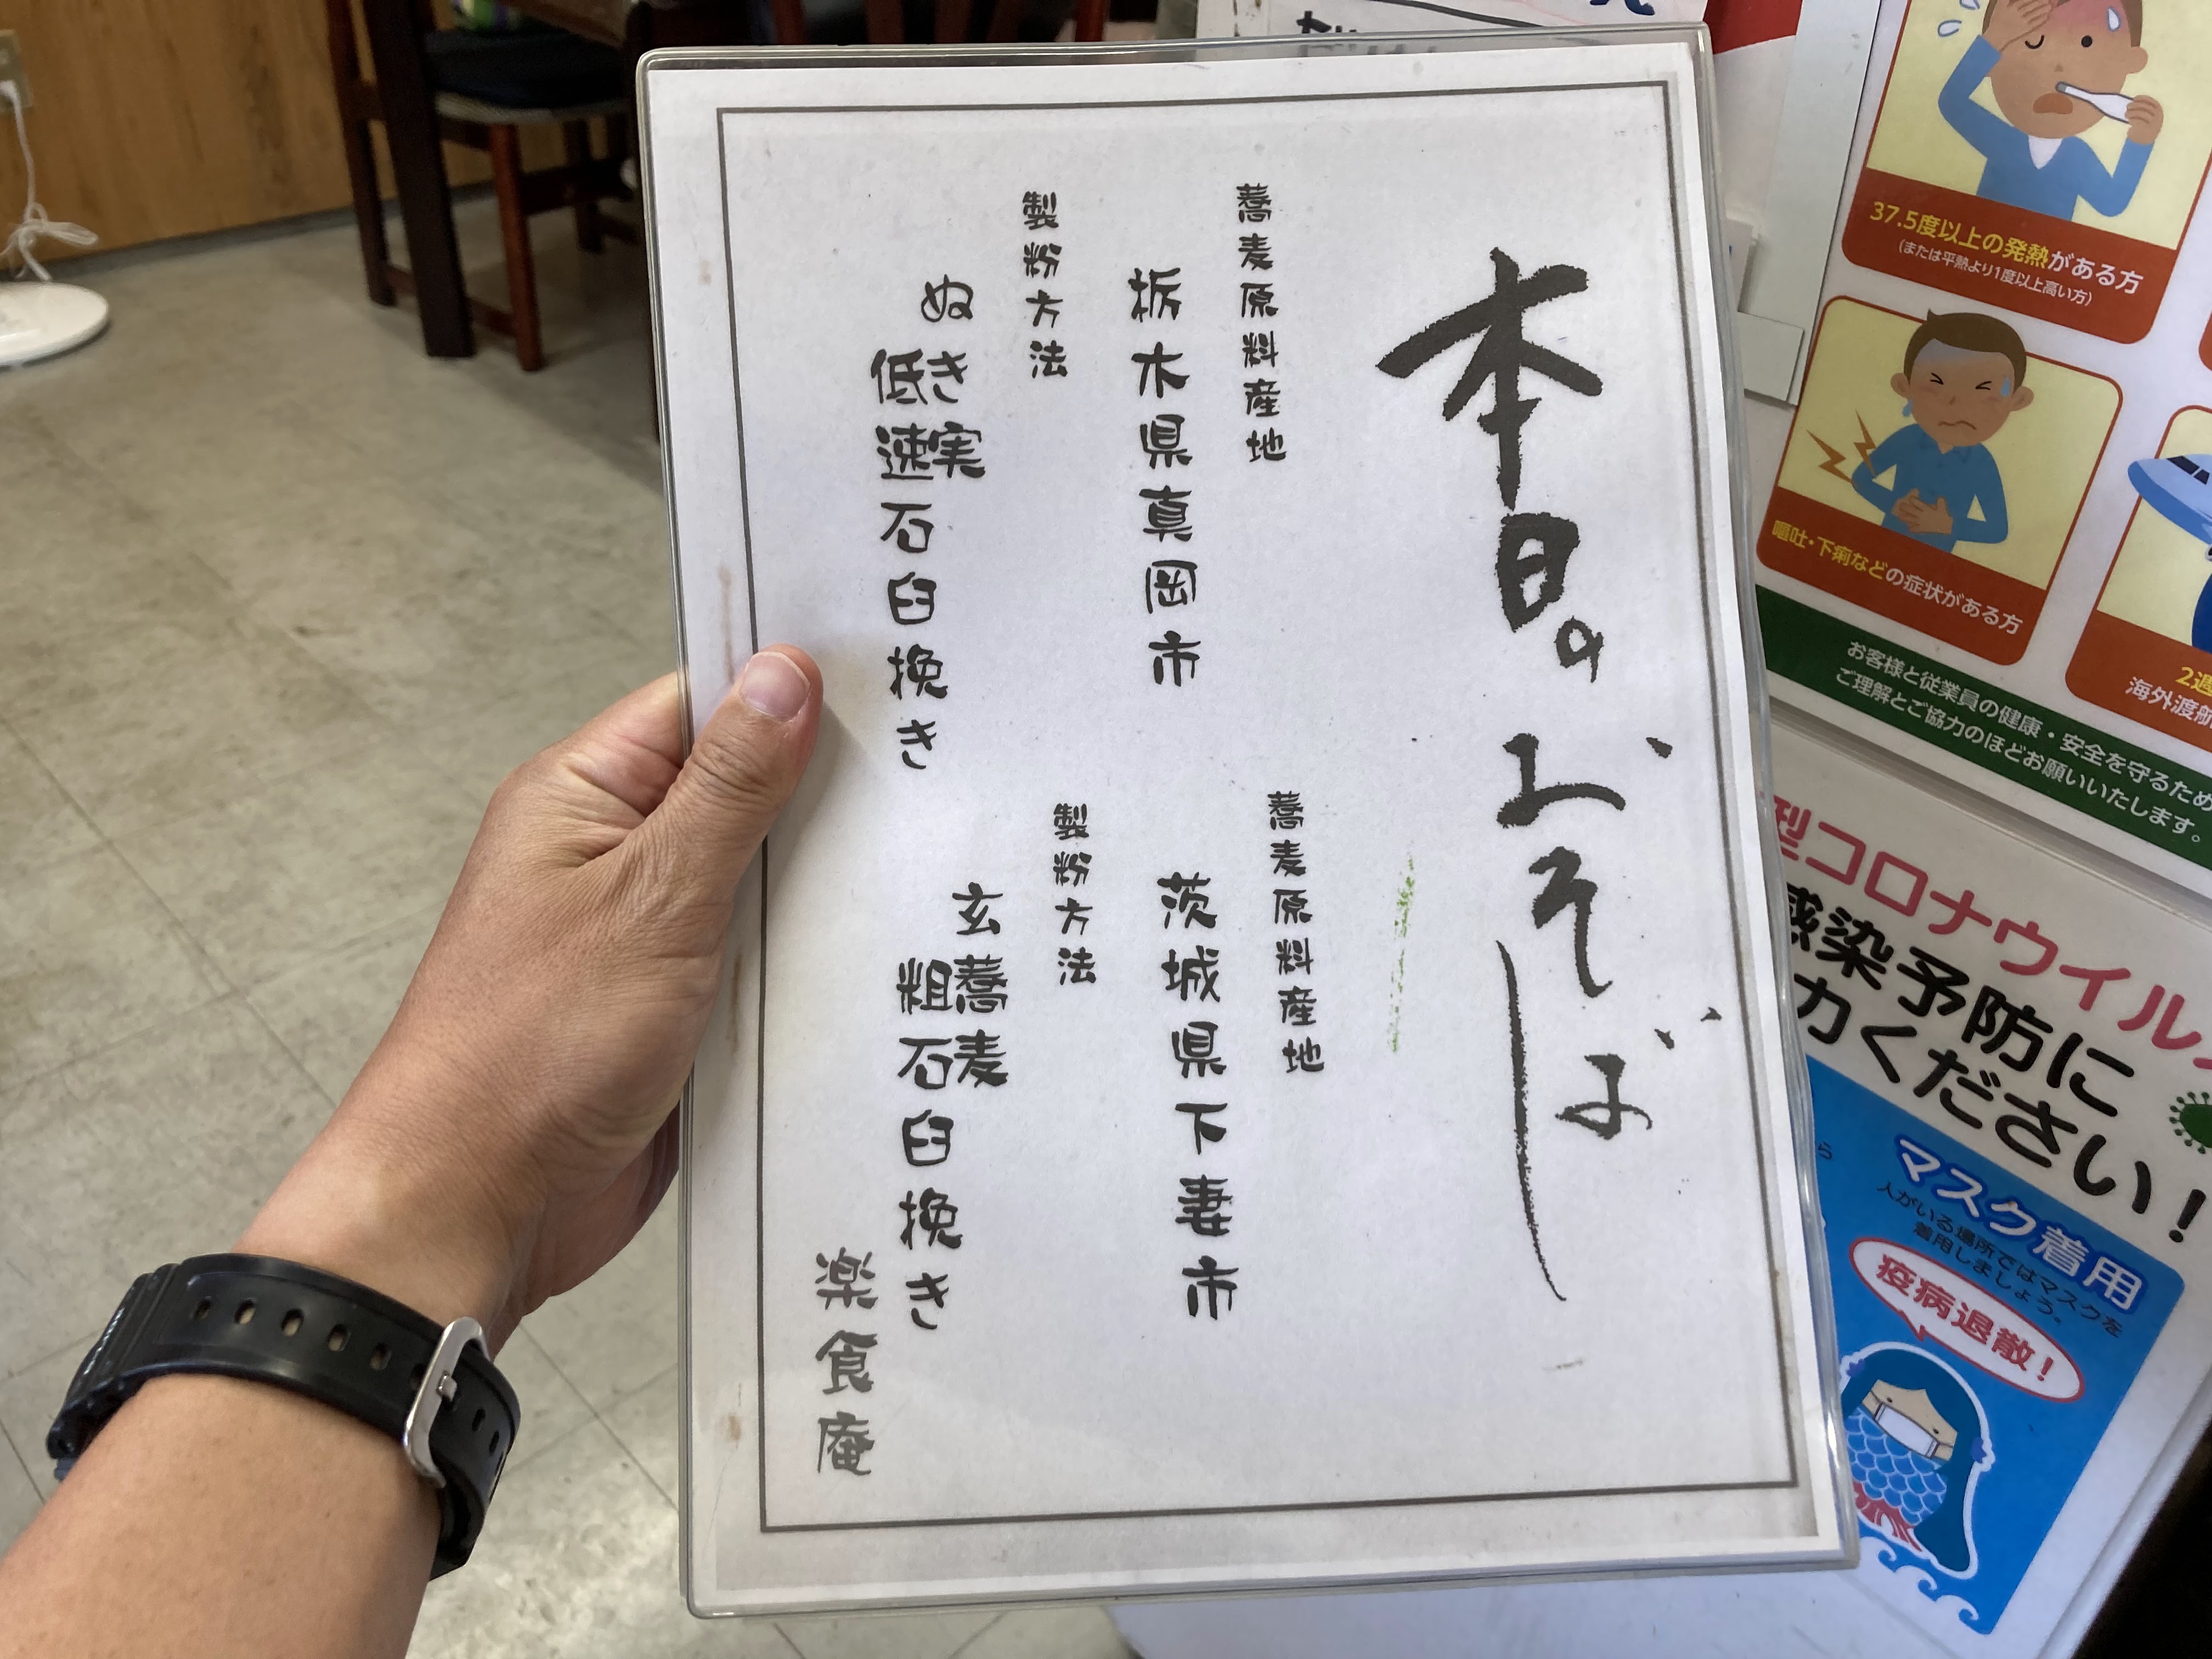 本日のおそば
蕎麦原料産地
栃木県真岡市
製粉方法
ぬき実
低速石臼挽き
蕎麦原料産地
茨城県下妻市
製粉方法
玄蕎麦
粗石臼挽き
楽食庵
37.5度以上の発熱がある方
(または平熱より1度以上高い方)
嘔吐・下痢などの症状がある方
2週
海外渡航
お客様と従業員の健康・安全を守るため
ご理解とご協力のほどお願いいたします。
型コロナウイルス
感染予防に
力ください!
マスク着用
人がいる場所ではマスクを
着用しましょう。
疫病退散!